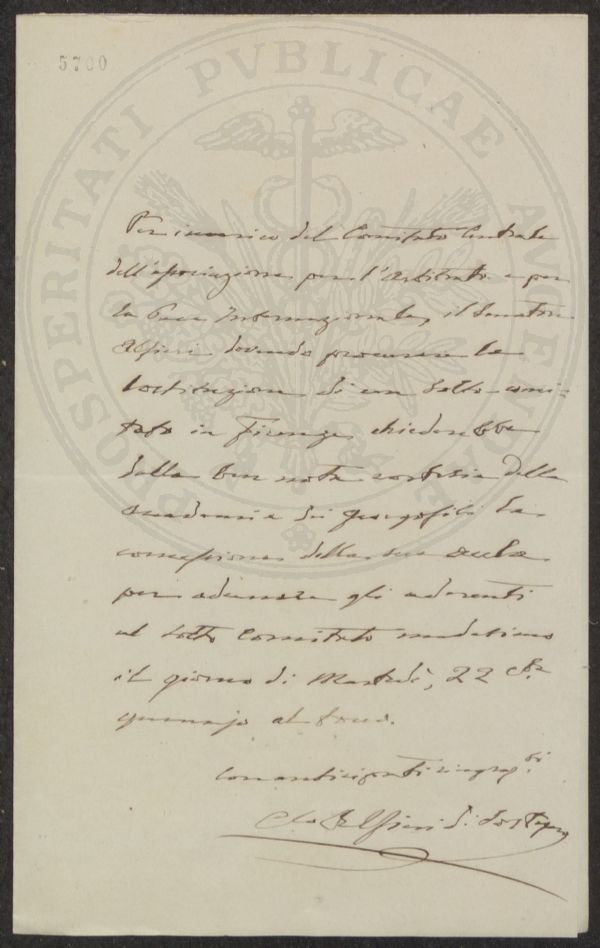 5700
PROSPERITATI PVBLICAE AVGENDAE
Per incarico del Comitato Centrale
dell'associazione per l'Arbitrato e per
la Pace Internazionale, il Senatore
Alfieri dovendo procurare la
costituzione di un Sotto-comi-
tato in Firenze chiederebbe
dalla ben nota cortesia della
Accademia dei Georgofili la
concessione della sua aula
per adunare gli aderenti
al Sotto Comitato medesimo
il giorno di Martedì, 22 
gennajo al tocco.
Con anticipati
Alfieri di Sostegno